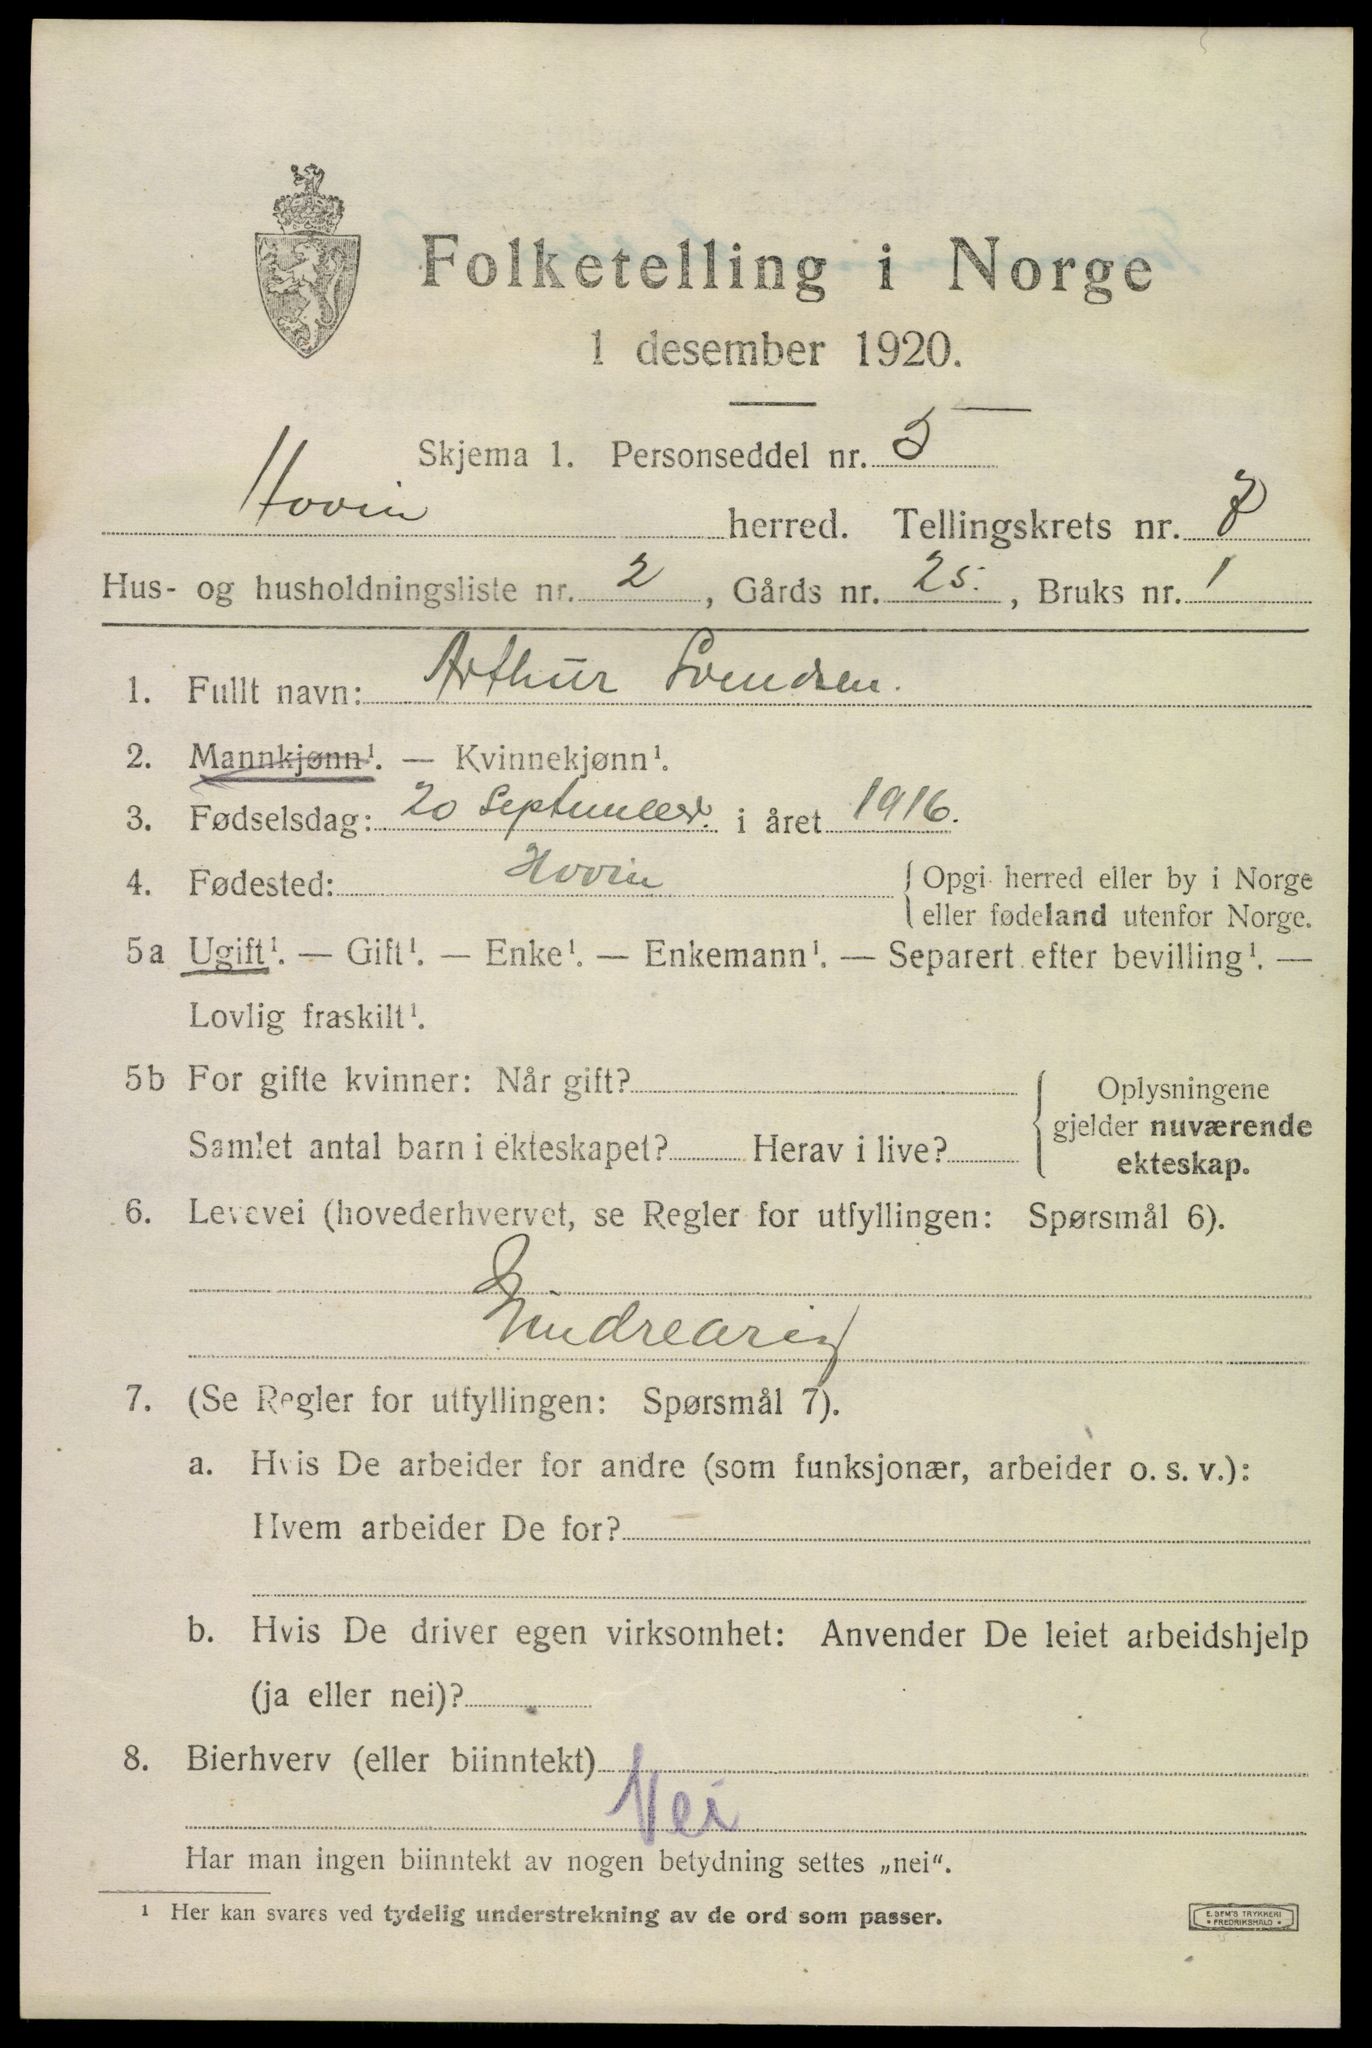 Folketelling i Norge
1 desember 1920.
Skjema 1. Personseddel nr. 5
Hovin herred. Tellingskrets nr. 7
Hus- og husholdningsliste nr. 2, Gårds nr. 25., Bruks nr. 1
1. Fullt navn: Arthur Svendsen.
2. Mannkjønn¹. — Kvinnekjønn¹.
3. Fødselsdag: 20 September. i året 1916.
4. Fødested: Hovin { Opgi herred eller by i Norge
eller fødeland utenfor Norge.
5a Ugift¹. — Gift¹. — Enke¹. — Enkemann¹. — Separert efter bevilling¹. —
Lovlig fraskilt¹.
5b For gifte kvinner: Når gift? { Oplysningene
gjelder nuværende
Samlet antal barn i ekteskapet? Herav i live?
ekteskap.
6. Levevei (hovederhvervet, se Regler for utfyllingen: Spørsmål 6).
Mindrearig
7. (Se Regler for utfyllingen: Spørsmål 7).
a. Hvis De arbeider for andre (som funksjonær, arbeider o. s. v.):
Hvem arbeider De for?
b. Hvis De driver egen virksomhet: Anvender De leiet arbeidshjelp
(ja eller nei)?
8. Bierhverv (eller biinntekt)
Nei
Har man ingen biinntekt av nogen betydning settes „nei“.
¹ Her kan svares ved tydelig understrekning av de ord som passer.
E. SEM'S TRYKKERI
• FREDRIKSHALD •